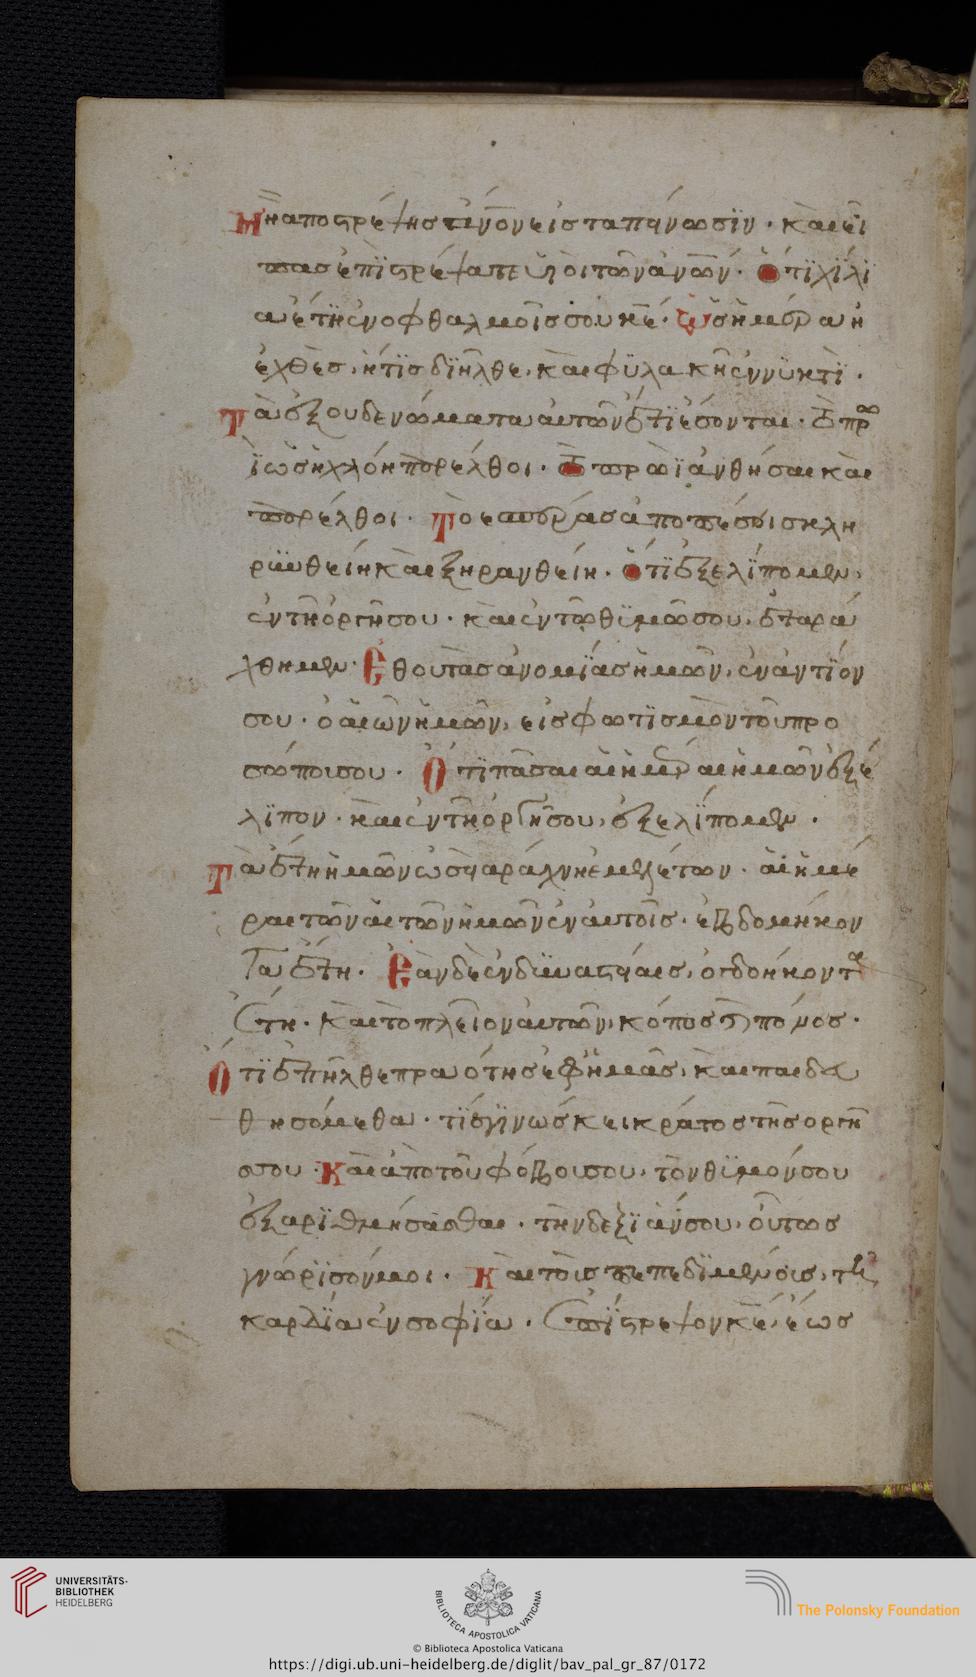 Μὴ ἀποστρέψης ἄνον εἰς ταπείνωσϊν · καὶ εἶ
πας ἐπϊστρέψατε υἱοὶ τῶν ἀνῶν · ὅτϊ χίλϊ
α ἔτη ἐν ὀφθαλμοῖς σου κε · ὡς ἡ ἡμέρα ἡ
ἐχθὲς, ἥτϊς δϊῆλθε, καὶ φϋλακὴ ἐν νϋκτὶ ·
Τὰ ἐξουδενώματα αὐτῶν ἔτϊ ἔσονται · τὸ πρ
ϊ ὡσὴ χλόη παρέλθοι · τὸ πρωῒ ἀνθήσαι καὶ
παρέλθοι · Τὸ ἑσπέρας ἀποπέσοι σκλη
ρϋνθείη καὶ ξηρανθείη · ὅτϊ ἐξελίπομεν,
ἐν τῆ ὀργῆ σου · καὶ ἐν τῶ θϋμῶ σου, ἐταρά
χθημεν · Ἔθου τὰς ἀνομίας ἡμῶν, ἐναντίον
σου · ὁ αἰὼν ἡμῶν, εἰς φωτϊσμὸν τοῦ προ
σώποι σου · Ὅτϊ πᾶσαι αἱ ἡμέραι ἡμῶν ἐξέ
λϊπον · καὶ ἐν τῆ ὀργῆ σου, ἐξελίπομεν ·
Τὰ ἔτη ἡμῶν ὡς ἀράχνη ἐμελέτων · αἱ ἡμέ
ραι τῶν ἐτῶν ἡμῶν ἐν αὐτοῖς · ἑβδομήκον
τα ἔτη · Ἐὰν δὲ ἐν δϋναστείαις, ὀγδοήκοντα
ἔτη · καὶ τὸ πλεῖον αὐτῶν, κόπος καὶ πόνος ·
Ὅτϊ ἐπῆλθε πραότης ἐφ ἡμᾶς, καὶ παιδευ
θησόμεθα · τίς γϊνώσκει κράτος τῆς ὀργῆ
ς σου · Καὶ ἀπὸ τοῦ φόβοι σου, τὸν θϋμόν σου
ἐξαρϊθμήσασθαι · τὴν δεξϊάν σου, οὕτως
γνώρϊσόν μοι · Καὶ τοῖς πεπεδϊμένοις, τῆ
καρδία ἐν σοφία · Ἐπίστρεψον κε, ἕως
UNIVERSITÄTS-
BIBLIOTHEK
HEIDELBERG
BIBLIOTECA APOSTOLICA VATICANA
The Polonsky Foundation
© Biblioteca Apostolica Vaticana
https://digi.ub.uni-heidelberg.de/diglit/bav_pal_gr_87/0172